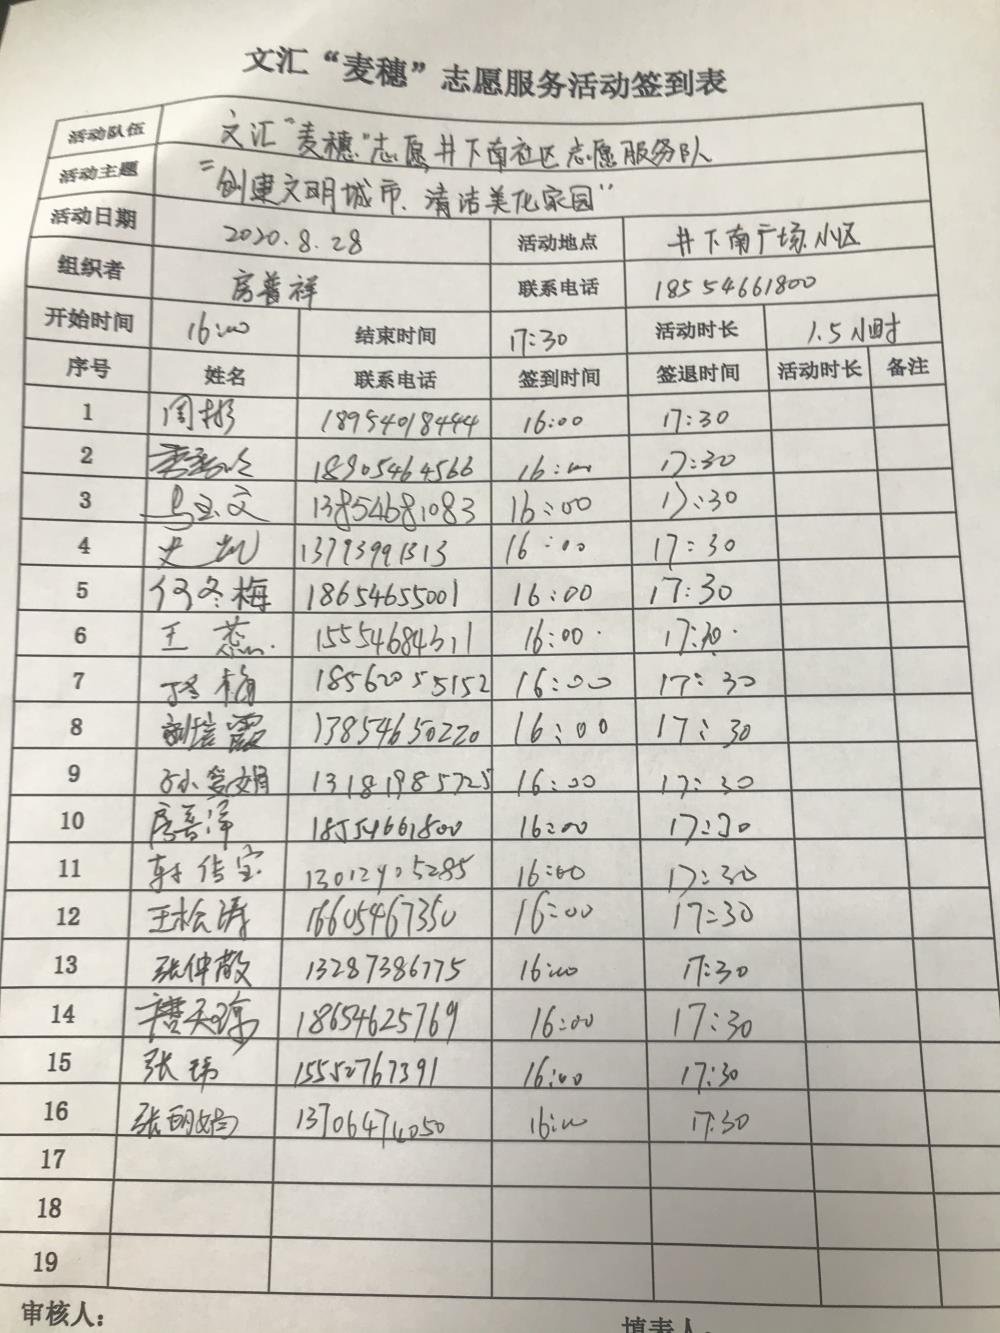 文汇“麦穗”志愿服务活动签到表
活动队伍 文汇“麦穗”志愿井下南社区志愿服务队
活动主题 “创建文明城市、清洁美化家园”
活动日期 2020.8.28 活动地点 井下南广场小区
组织者 房普祥 联系电话 18554661800
开始时间 16:00 结束时间 17:30 活动时长 1.5小时
序号 姓名 联系电话 签到时间 签退时间 活动时长 备注
1 周彬 18954018444 16:00 17:30
2 18905464566 16:00 17:30
3 马玉文 13854681083 16:00 17:30
4 史凯 13793991313 16:00 17:30
5 何冬梅 18654655001 16:00 17:30
6 王燕 15554684311 16:00 17:30
7 18562055152 16:00 17:30
8 刘培霞 13854650220 16:00 17:30
9 13181985725 16:00 17:30
10 18554661800 16:00 17:30
11 韩传宝 13012905285 16:00 17:30
12 王松涛 16605467350 16:00 17:30
13 张仲敬 13287386775 16:00 17:30
14 18654625769 16:00 17:30
15 张玮 15552767391 16:00 17:30
16 张明娟 13706474050 16:00 17:30
17
18
19
审核人: 填表人: